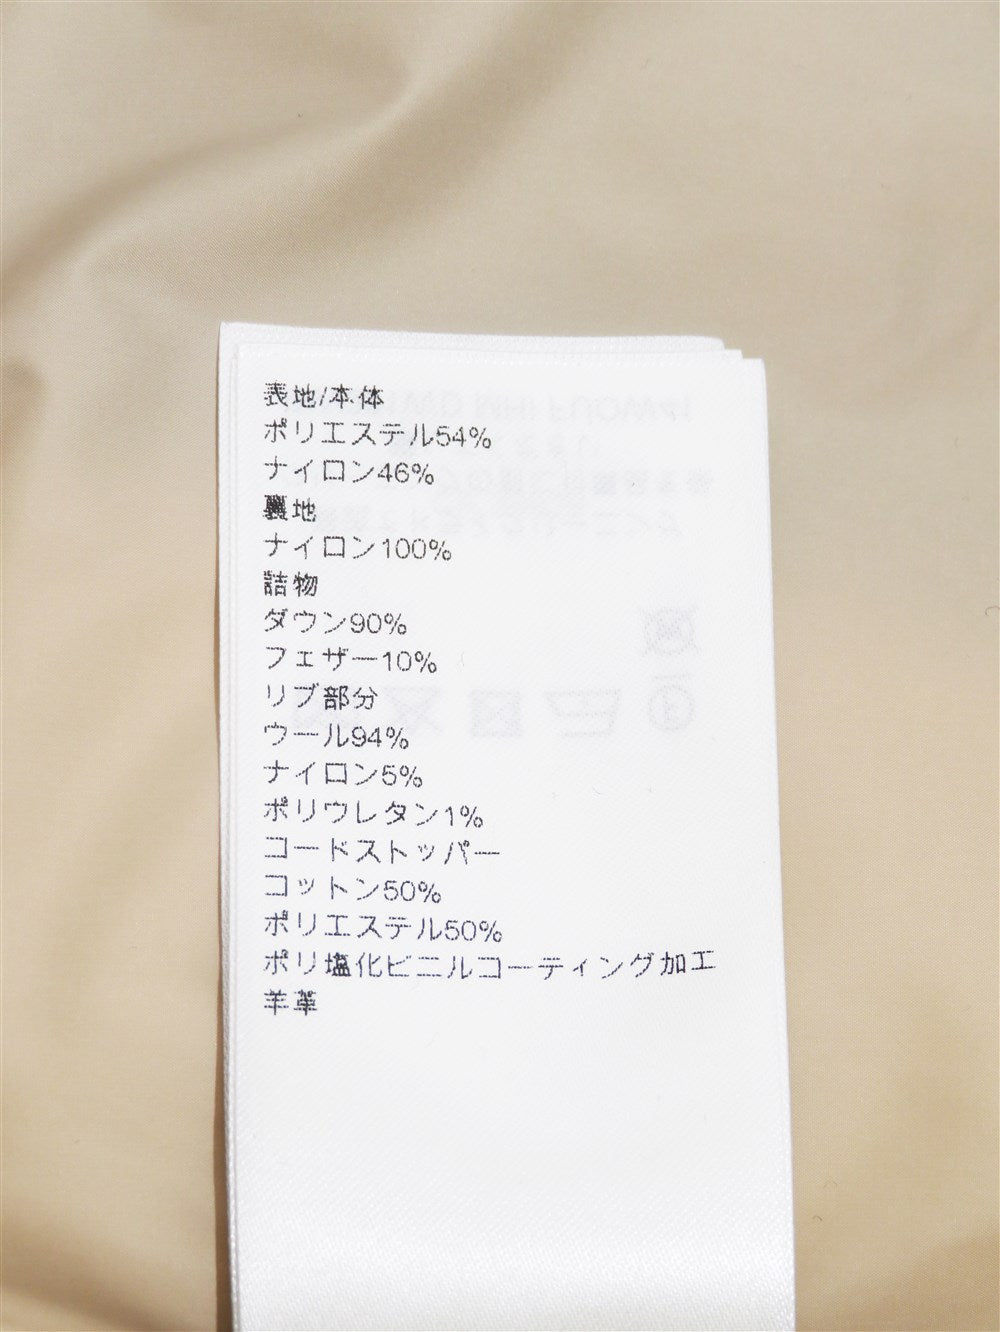 表地/本体
ポリエステル54%
ナイロン46%
裏地
ナイロン100%
詰物
ダウン90%
フェザー10%
リブ部分
ウール94%
ナイロン5%
ポリウレタン1%
コードストッパー
コットン50%
ポリエステル50%
ポリ塩化ビニルコーティング加工
羊革